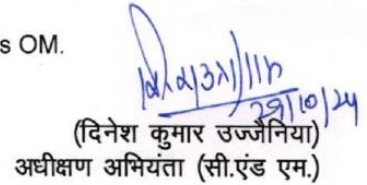 s OM.
29/10/24
(दिनेश कुमार उज्जैनिया)
अधीक्षण अभियंता (सी.एंड एम.)